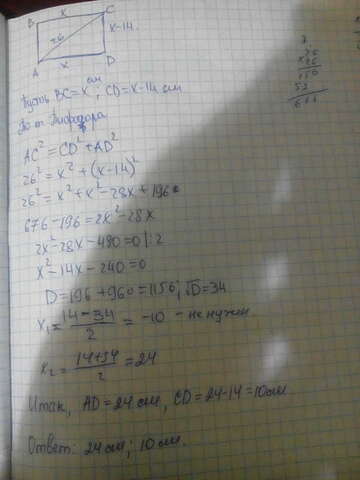 B x C
26
x-14
A x D
x 26
26
156
52
676
Пусть BC=x см; CD=x-14 см
По т. Пифагора
AC²=CD²+AD²
26²=x²+(x-14)²
26²=x²+x²-28x+196
676-196=2x²-28x
2x²-28x-480=0 |:2
x²-14x-240=0
D=196+960=1156; √D=34
x₁=14-34/2=-10 - не нужен
x₂=14+34/2=24
Итак, AD=24 см, CD=24-14=10 см
Ответ: 24 см; 10 см.